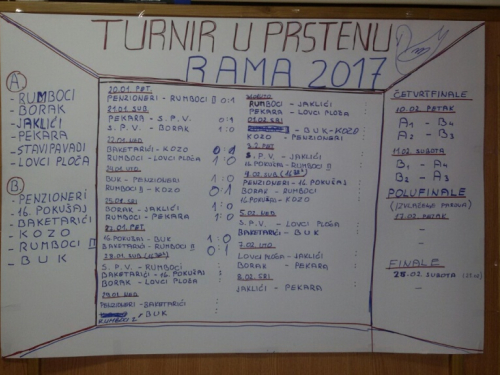 TURNIR U PRSTENU
RAMA 2017
A.
- RUMBOCI
- BORAK
- JAKLIĆI
- PEKARA
- STAVIPAVADI
- LOVCI PLOČA
B.
- PENZIONERI
- 16. POKUŠAJ
- BAKETARIĆI
- KOZO
- RUMBOCI II
- BUK
20.01. PET.
PENZIONERI - RUMBOCI II 0:1
21.01. SUB.
PEKARA - S.P.V. 0:1
S.P.V. - BORAK 1:0
22.01. NED
BAKETARIĆI - KOZO 0:1
RUMBOCI - LOVCI PLOČA 1:0
BUK - PENZIONERI 1:0
RUMBOCI II - KOZO 0:1
BORAK - JAKLIĆI 1:0
RUMBOCI - PEKARA 1:0
27.01. PET.
16. POKUŠAJ - BUK 1:0
BAKETARIĆI - RUMBOCI II 0:1
S.P.V. - RUMBOCI :
BAKETARIĆI - 16. POKUŠAJ :
BORAK - LOVCI PLOČA :
29.01. NED
PENZIONERI - BAKETARIĆI :
BUK
RUMBOCI - JAKLIĆI :
PEKARA - LOVCI PLOČA :
- BUK - KOZO
KOZO - PENZIONERI
S.P.V. - JAKLIĆI :
16. POKUŠAJ - RUMBOCI II :
PENZIONERI - 16. POKUŠAJ
BORAK - RUMBOCI
16. POKUŠAJ - KOZO
5.02. NED
S.P.V. - LOVCI PLOČA
BAKETARIĆI - BUK
LOVCI PLOČA - JAKLIĆI :
BORAK - PEKARA
8.02. SRI
JAKLIĆI - PEKARA :
ČETVRTFINALE
10.02. PETAK
A1 - B4
A2 - B3
11.02. SUBOTA
B1 - A4
B2 - A3
POLUFINALE
(IZVLAČENJE PAROVA)
17.02. PETAK
-
-
FINALE
25.02. SUBOTA
-